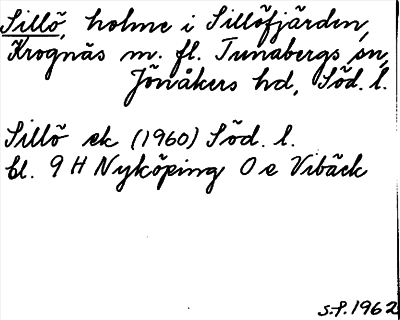 Sillö, holme i Sillöfjärden,
Krognäs m. fl. Tunabergs sn,
Jönåkers hd, Söd. l.
Sillö ek (1960) Söd. l.
bl. 9 H Nyköping O e Vibäck
S.F. 1962